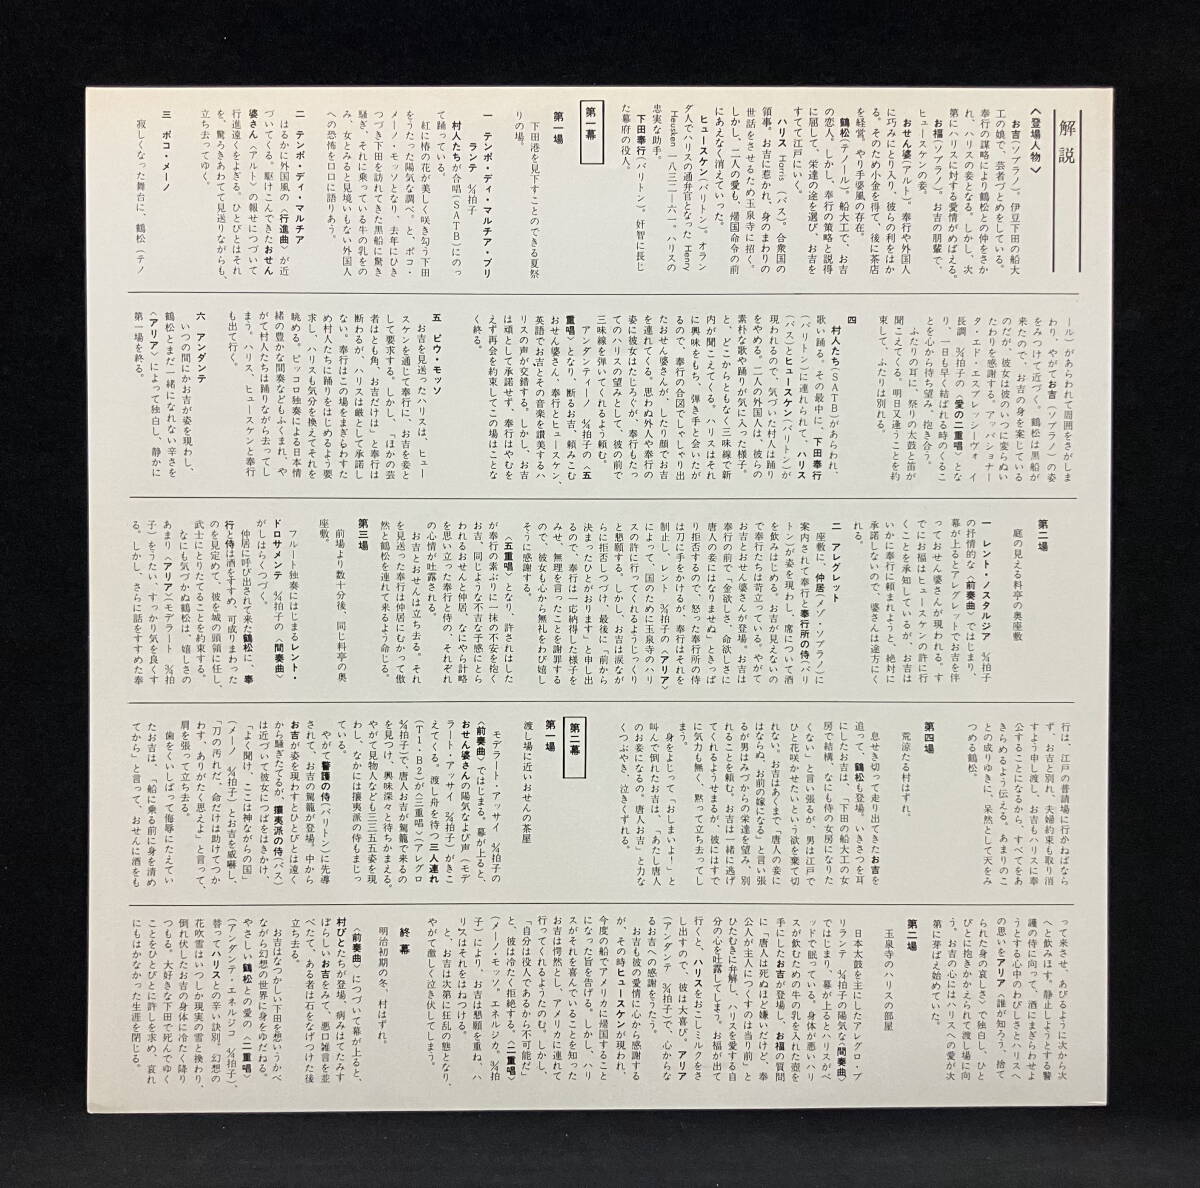 解説
〈登場人物〉
お吉(ソプラノ)。伊豆下田の船大
工の娘で、芸者づとめをしている。
奉行の謀略により鶴松との仲をさか
れ、ハリスの妾となる。しかし、次
第にハリスに対する愛情がめばえる。
お福(ソプラノ)。お吉の朋輩で、
ヒュースケンの妾。
おせん婆(アルト)。奉行や外国人
に巧みにとり入り、彼らの利をはか
る。そのため小金を得て、後に茶店
を経営。やり手婆風の存在。
鶴松(テノール)。船大工で、お吉
の恋人。しかし、奉行の策略と説得
に屈して、栄達の途を選び、お吉を
すてて江戸にいく。
ハリス Harris (バス)。合衆国の
領事。お吉に惹かれ、身のまわりの
世話をさせるため玉泉寺に招く。
しかし、二人の愛も、帰国命令の前
にあえなく消えていった。
ヒュースケン(バリトン)。オラン
ダ人でハリスの通弁官となった Henry
Heusken 一八三二―六一。ハリスの
忠実な助手。
下田奉行(バリトン)。奸智に長じ
た幕府の役人。
第一幕
第一場
下田港を見下すことのできる夏祭
りの場。
一 テンポ・ディ・マルチア・ブリ
ランテ 2/4拍子
村人たちが合唱(SATB)にのっ
て踊っている。
紅に椿の花が美しく咲き匂う下田
をうたった陽気な調べ。と、ポコ・
メーノ・モッソとなり、去年にひき
つづき下田を訪れてきた黒船に驚き
騒ぎ、それに乗っている牛の乳をの
み、女とみると見境いもない外国人
への恐怖を口口に語りあう。
二 テンポ・ディ・マルチア
はるかに外国風の〈行進曲〉が近
づいてくる。駆けこんできたおせん
婆さん(アルト)の報せにつづいて
行進遠くをよぎる。ひとびとはそれ
を、驚ろきあわてて見送りながらも、
立ち去ってゆく。
三 ポコ・メーノ
寂しくなった舞台に、鶴松(テノ
ール)があらわれて周囲をさがしま
わり、やがてお吉(ソプラノ)の姿
をみつけて近づく。鶴松は黒船が
来たので、お吉の身を案じている
のだが、彼女は彼のいつに変らぬい
たわりを感謝する。アッパショナー
タ・エド・エスプレッシーヴォ イ
長調 3/4拍子の〈愛の二重唱〉とな
り、一日も早く結ばれる時のくるこ
とを心から待ち望み、抱き合う。
ふたりの耳に、祭りの太鼓と笛が
聞こえてくる。明日又逢うことを約
束して、ふたりは別れる。
四
村人たち(SATB)があらわれ、
歌い踊る。その最中に、下田奉行
(バリトン)に連れられて、ハリス
(バス)とヒュースケン(バリトン)が
現われるので、気づいた村人は踊り
をやめる。二人の外国人は、彼らの
素朴な歌や踊りが気に入った様子。
と、どこからともなく三味線で新
内が聞こえてくる。ハリスはそれ
に興味をもち、弾き手と会いたが
るので、奉行の合図でしゃしゃり出
たおせん婆さんが、したり顔でお吉
を連れてくる。思わぬ外人や奉行の
姿に彼女はたじろぐが、奉行もたっ
てのハリスの望みとして、彼の前で
三味線を弾いてくれるよう頼む。
アンダンティーノ 3/4拍子の〈五
重唱〉となり、断るお吉、頼みこむ
おせん婆さん、奉行とヒュースケン、
英語でお吉とその音楽を讃美するハ
リスの声が交錯する。しかし、お吉
は頑として承諾せず、奉行はやむを
えず再会を約束してこの場はことな
く終る。
五 ピウ・モッソ
お吉を見送ったハリスは、ヒュー
スケンを通じて奉行に、お吉を妾と
して要求する。しかし、「ほかの芸
者はとも角、お吉だけは」と奉行は
断わるが、ハリスは厳として承諾し
ない。奉行はこの場をまぎらわすた
め村人たちに踊りをはじめるよう要
求し、ハリスも気分を換えてそれを
眺める。ピッコロ独奏による日本情
緒の豊かな間奏などもふくまれ、や
がて村人たちは踊りながら去ってし
まう。ハリス、ヒュースケンと奉行
も出て行く。
六 アンダンテ
いつの間にかお吉が姿を現わし、
鶴松とまだ一緒になれない辛さを
〈アリア〉によって独白し、静かに
第一場を終る。
第二場
庭の見える料亭の奥座敷
一 レント・ノスタルジア 4/4拍子
の抒情的な〈前奏曲〉ではじまり、
幕が上るとアレグレットでお吉を伴
っておせん婆さんが現われる。す
でにお福はヒュースケンの許に行
くことを承知しているが、お吉は
いかに奉行に頼まれようと、絶対に
承諾しないので、婆さんは途方にく
れる。
二 アレグレット
座敷に、仲居(メゾ・ソプラノ)に
案内されて奉行と奉行所の侍(バリ
トン)が姿を現わし、席について酒
を飲みはじめる。お吉が見えないの
で奉行たちは苛立っている。やがて
お吉とおせん婆さんが登場。お吉は
奉行の前で「金欲しさに、命欲しさに
唐人の妾にはなりませぬ」ときっぱ
り拒否するので、怒った奉行所の侍
は刀に手をかけるが、奉行はそれを
制止し、レント 4/4拍子の〈アリア〉
によって、国のために玉泉寺のハリ
スの許に行ってくれるようじっくり
と懇願する。しかし、お吉は涙なが
らに拒否しつづけ、最後に「前から
決まったひとがおります」と申し出
るので、奉行は一応納得した様子を
みせ、無理を言ったことを謝罪する
ので、彼女も心から無礼をわび嬉し
そうに感謝する。
〈五重唱〉となり、許されはした
が奉行の素ぶりに一抹の不安を抱く
お吉、同じような不吉な予感にとら
われるおせんと仲居、なにやら計略
を思い立った奉行と侍の、それぞれ
の心情が吐露される。
お吉とおせんは立ち去る。それ
を見送った奉行は仲居にむかって傲
然と鶴松を連れて来るよう命じる。
第三場
前場より数十分後、同じ料亭の奥
座敷。
フルート独奏にはじまるレント・
ドロサメンテ 4/4拍子の〈間奏曲〉
がしばらくつづく。
仲居に呼び出されて来た鶴松に、奉
行と侍は酒をすすめ、可成りまわった
のを見定めて、彼を城の頭領に任し、
武士にとりたてることを約束する。
なにも気づかぬ鶴松は、嬉しさの
あまり〈アリア〉(モデラート 3/4拍
子)をうたい、すっかり気を良くす
る。しかし、さらに話をすすめた奉
行は、江戸の普請場に行かねばなら
ず、お吉と別れ、夫婦約束も取り消
すよう申し渡し、お吉もハリスに奉
公することになるから、すべてをあ
きらめるよう伝える。あまりのこ
との成りゆきに、呆然として天をみ
つめる鶴松。
第四場
荒涼たる村はずれ。
息せき切って走り出てきたお吉を
追って、鶴松も登場。いきさつを耳
にしたお吉は、「下田の船大工の女
房で結構、なにも侍の女房になりた
くない」と言い張るが、男は江戸で
ひと花咲かせたいという欲を棄て切
れない。お吉はあくまで「唐人の妾に
はならぬ、お前の嫁になる」と言い張
るが男はみづからの栄達を望み、別
れることを頼む。お吉は一緒に逃げ
てくれるようせまるが、彼にはすで
に気力も無く、黙って立ち去ってし
まう。
身をよじって「おしまいよ!」と
叫んで倒れたお吉は、「あたし唐人
のお妾になるの。唐人お吉」と力な
くつぶやき、泣きくずれる。
第二幕
第一場
渡し場に近いおせんの茶屋
モデラート・アッサイ 4/4拍子の
〈前奏曲〉ではじまる。幕が上ると、
おせん婆さんの陽気なよび声(モデ
ラート・アッサイ 4/4拍子)がきこ
えてくる。渡し舟を待つ三人連れ
(T1・B2)が〈三重唱〉(アレグロ
2/4拍子)で、唐人お吉が駕籠で来るの
を見つけ、興味深々と待ちかまえる。
やがて見物人なども三三五五姿を現
わし、なかには攘夷派の侍もまじっ
ている。
やがて警護の侍(バリトン)に先導
されて、お吉の駕籠が登場。中から
お吉が姿を現わすとひとびとは遠く
から騒ぎたてるが、攘夷派の侍(バス)
は近づいて彼女につばをはきかけ、
「よく聞け、ここは神ながらの国」
(メーノ 4/4拍子)とお吉を威嚇し、
「刀の汚れだ。命だけは助けてつか
わす、ありがたく思えよ」と言って、
肩を張って立ち去る。
歯をくいしばって侮辱にたえてい
たお吉は、「船に乗る前に身を清め
てから」と言って、おせんに酒をも
って来させ、あびるように次から次
へと飲みほす。静止しようとする警
護の侍に向って、酒にまぎらわせよ
うとする心中のわびしさとハリスへ
の思いをアリア〈誰が知ろう、捨て
られた身の哀しさ〉で独白し、ひと
びとに抱きかかえられて渡し場に向
う。お吉の心にはハリスへの愛が次
第に芽ばえ始めていた。
第二場
玉泉寺のハリスの部屋
日本太鼓を主にしたアレグロ・ブ
リランテ 2/4拍子の陽気な〈間奏曲〉
ではじまり、幕が上るとハリスがベ
ッドで眠っている。身体が悪いハリ
スが飲むための牛の乳を入れた壺を
手にしたお吉が登場し、お福の質問
に「唐人は死ぬほど嫌いだけど、奉
公人が主人につくすのは当り前」と
ひたむきに弁解し、ハリスを愛する自
分の心を吐露してしまう。お福が出て
行くと、ハリスをおこしミルクをさ
し出すので、彼は大喜び。アリア
(アンダンテ 3/4拍子)で、心からな
るお吉への感謝をうたう。
お吉も彼の愛情に心から感謝する
が、その時ヒュースケンが現われ、
今度の船でアメリカに帰国すること
になった旨を告げる。しかし、ハリ
スがそれを喜んでいることを知った
お吉は愕然とし、アメリカに連れて
行ってくれるようたのむ。しかし、
「自分は役人であるから不可能だ」
と、彼は冷たく拒絶する。〈二重唱〉
(メーノ・モッソ。エネルジカ。4/4拍
子)により、お吉は懇願を重ね、ハ
リスはそれをはねつける。
と、お吉は次第に狂乱の態となり、
やがて激しく泣き伏してしまう。
終幕
明治初期の冬、村はずれ。
〈前奏曲〉につづいて幕が上ると、
村びとたちが登場。病みはてたみす
ぼらしいお吉をみて、悪口雑言を並
べたて、ある者は石をなげつけた後
立ち去る。
お吉はなつかしい下田を想いうかべ
ながら幻想の世界に身をゆだねる。
やさしい鶴松との愛の〈二重唱〉
(アンダンテ・エネルジコ 4/4拍子)、
替ってハリスとの辛い訣別。幻想の
花吹雪はいつしか現実の雪と換わり、
倒れ伏したお吉の身体に冷たく降り
つもる。大好きな下田で死んでゆく
ことをひとびとに許しを求め、哀れ
にもはかなかった生涯を閉じる。